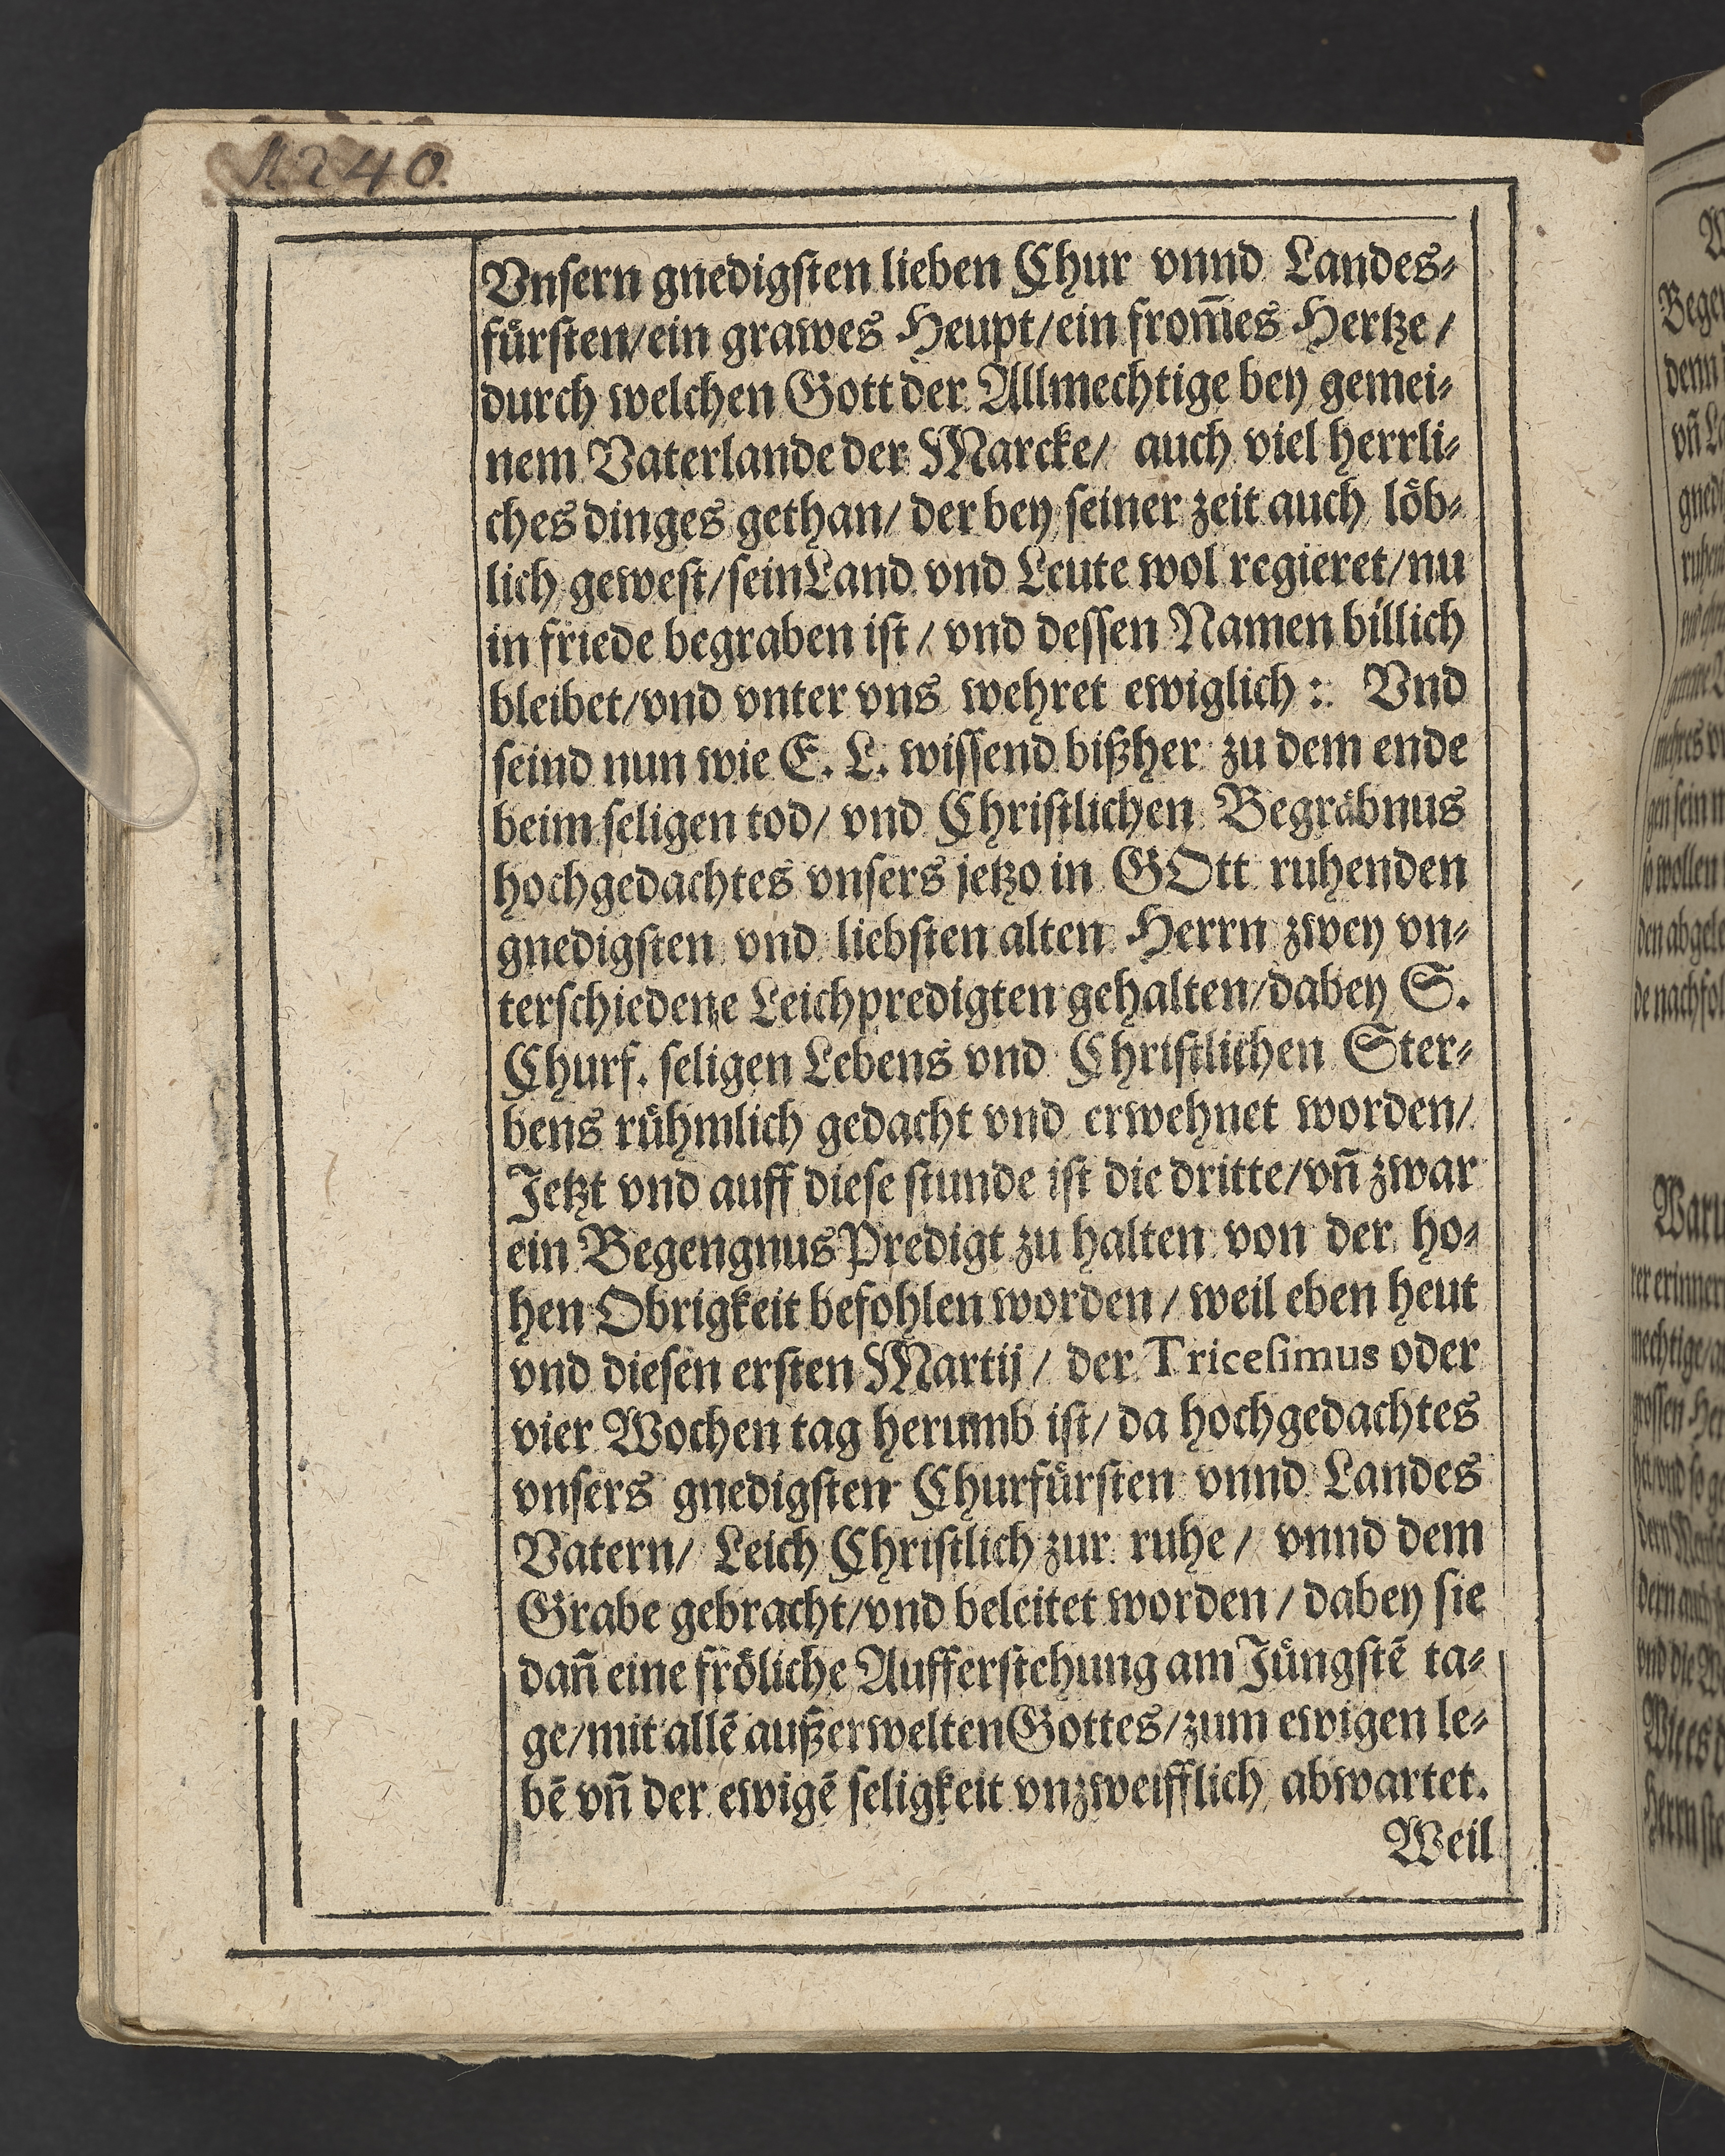 1240.
Vnſern gnedigſten lieben Chur vnnd Landes⸗
fuͤrſten/ein grawes Heupt/ein from̃es Hertze/
durch welchen Gott der Allmechtige bey gemei⸗
nem Vaterlande der Marcke/ auch viel herrli⸗
ches dinges gethan/ der bey ſeiner zeit auch loͤb⸗
lich geweſt/ſein Land vnd Leute wol regieret/nu
in friede begraben iſt/ vnd deſſen Namen billich
bleibet/vnd vnter vns wehret ewiglich: Vnd
ſeind nun wie E. L. wiſſend bißher zu dem ende
beim ſeligen tod/ vnd Chriſtlichen Begraͤbnus
hochgedachtes vnſers jetzo in GOtt ruhenden
gnedigſten vnd liebſten alten Herrn zwey vn⸗
terſchiedene Leichpredigten gehalten/dabey S.
Churf. ſeligen Lebens vnd Chriſtlichen Ster⸗
bens ruͤhmlich gedacht vnd erwehnet worden/
Jetzt vnd auff dieſe ſtunde iſt die dritte/vñ zwar
ein Begengnus Predigt zu halten von der ho⸗
hen Obrigkeit befohlen worden/ weil eben heut
vnd dieſen erſten Martij/ der Triceſimus oder
vier Wochen tag herumb iſt/ da hochgedachtes
vnſers gnedigſten Churfuͤrſten vnnd Landes
Vatern/ Leich Chriſtlich zur ruhe/ vnnd dem
Grabe gebracht/vnd beleitet worden/ dabey ſie
dañ eine froͤliche Aufferſtehung am Juͤngſtẽ ta⸗
ge/mit allẽ außerwelten Gottes/zum ewigen le⸗
bẽ vñ der ewigẽ ſeligkeit vnzweifflich abwartet.
Weil